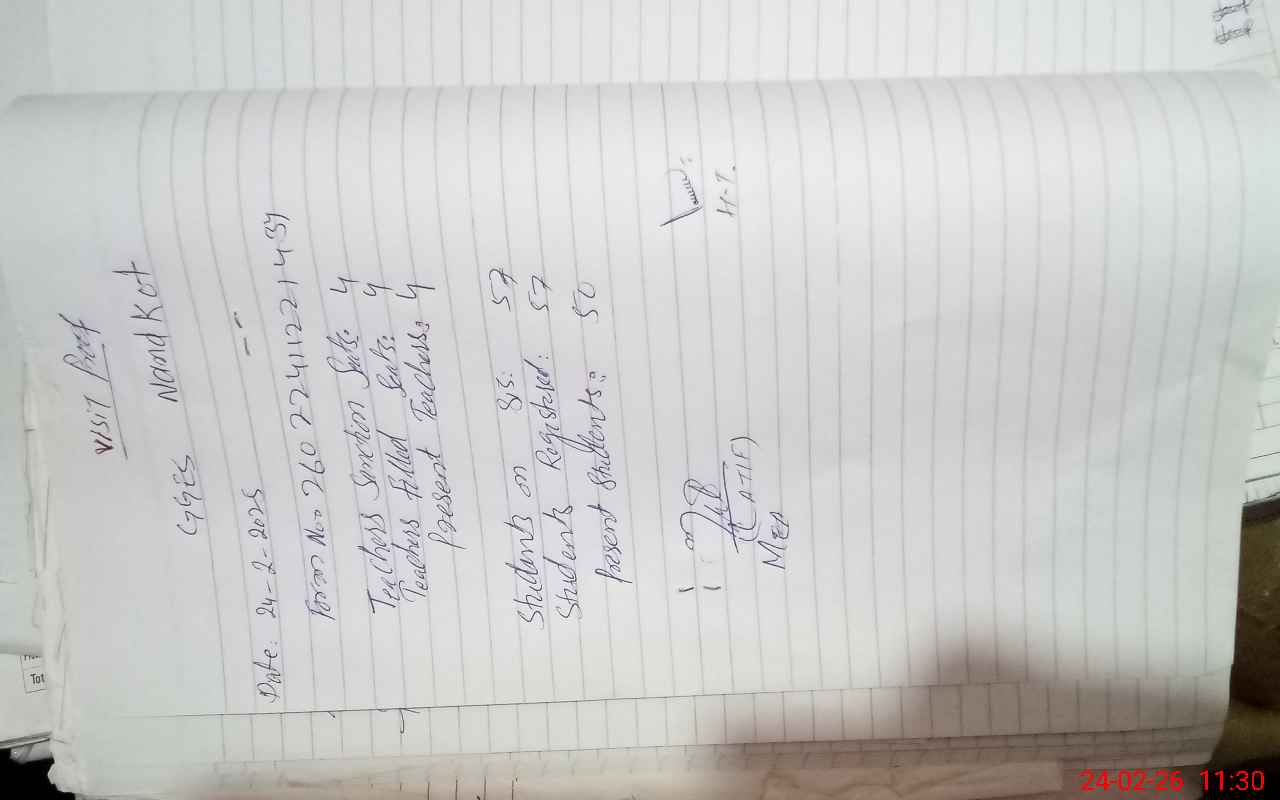 Visit Proof
GGES Nandkot
Date: 24-2-2025
Form No:- 260224112214
Teachers Senction Seats: 4
Teachers Filled Seats: 4
Present Teachers: 4
Students on SIS: 57
Students Registered: 57
Present Students: 50
(ATIF)
MEA
H-T.
Tot
24-02-26 11:30